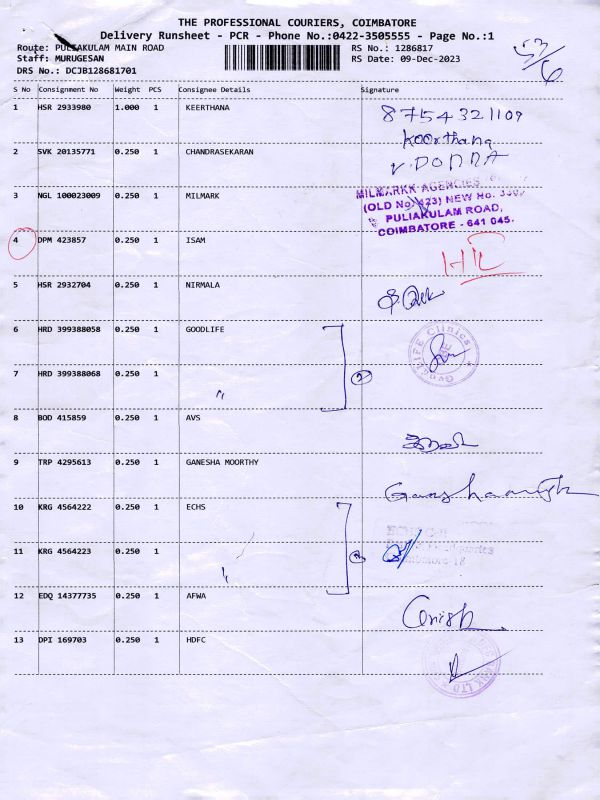 THE PROFESSIONAL COURIERS, COIMBATORE
Delivery Runsheet - PCR - Phone No.:0422-3505555 - Page No.:1
Route: PULIAKULAM MAIN ROAD RS No.: 1286817
Staff: MURUGESAN RS Date: 09-Dec-2023
DRS No.: DCJB128681701
53/6
S No Consignment No Weight PCS Consignee Details Signature
1 HSR 2933980 1.000 1 KEERTHANA 8754321109
Keerthana
2 SVK 20135771 0.250 1 CHANDRASEKARAN
3 NGL 100023009 0.250 1 MILMARK MILMARKK AGENCIES
(OLD No. 423) NEW No.
PULIAKULAM ROAD,
COIMBATORE - 641 045.
4 DPM 423857 0.250 1 ISAM
5 HSR 2932704 0.250 1 NIRMALA
6 HRD 399388058 0.250 1 GOODLIFE GoodLIFE Clinics
7 HRD 399388068 0.250 1 " 2
8 BOD 415859 0.250 1 AVS
9 TRP 4295613 0.250 1 GANESHA MOORTHY
10 KRG 4564222 0.250 1 ECHS
11 KRG 4564223 0.250 1 "
12 EDQ 14377735 0.250 1 AFWA
13 DPI 169703 0.250 1 HDFC